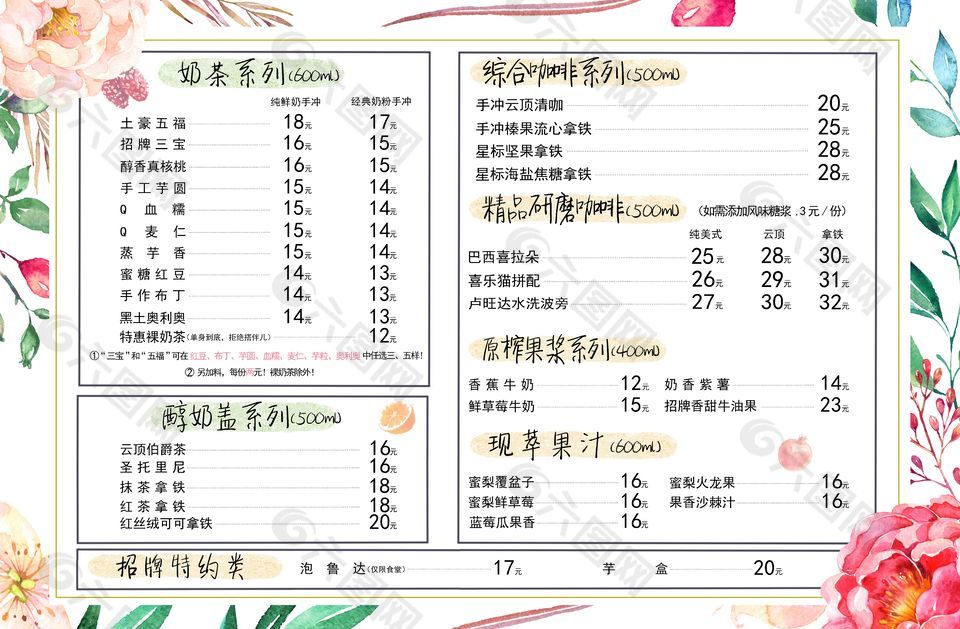 奶茶系列(600ml)
纯鲜奶手冲 经典奶粉手冲
土豪五福 18元 17元
招牌三宝 16元 15元
醇香真核桃 16元 15元
手工芋圆 15元 14元
Q血糯 15元 14元
Q麦仁 15元 14元
蒸芋香 15元 14元
蜜糖红豆 14元 13元
手作布丁 14元 13元
黑土奥利奥 14元 13元
特惠裸奶茶(单身到底，拒绝搭伴儿) 12元
①“三宝”和“五福”可在 红豆、布丁、芋圆、血糯、麦仁、芋粒、奥利奥 中任选三、五样!
② 另加料，每份两元！裸奶茶除外!
醇奶盖系列(500ml)
云顶伯爵茶 16元
圣托里尼 16元
抹茶拿铁 18元
红茶拿铁 18元
红丝绒可可拿铁 20元
综合咖啡系列(500ml)
手冲云顶清咖 20元
手冲榛果流心拿铁 25元
星标坚果拿铁 28元
星标海盐焦糖拿铁 28元
精品研磨咖啡(500ml) (如需添加风味糖浆.3元/份)
纯美式 云顶 拿铁
巴西喜拉朵 25元 28元 30元
喜乐猫拼配 26元 29元 31元
卢旺达水洗波旁 27元 30元 32元
原榨果浆系列(400ml)
香蕉牛奶 12元 奶香紫薯 14元
鲜草莓牛奶 15元 招牌香甜牛油果 23元
现苹果汁(600ml)
蜜梨覆盆子 16元 蜜梨火龙果 16元
蜜梨鲜草莓 16元 果香沙棘汁 16元
蓝莓瓜果香 16元
招牌特约类 泡鲁达(仅限食堂) 17元 芋盒 20元